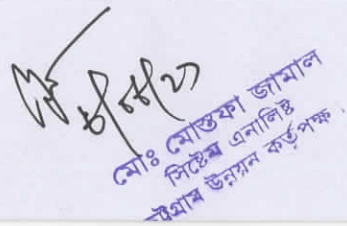 মোঃ মোস্তফা জামাল
সিস্টেম এনালিষ্ট
চট্টগ্রাম উন্নয়ন কর্তৃপক্ষ